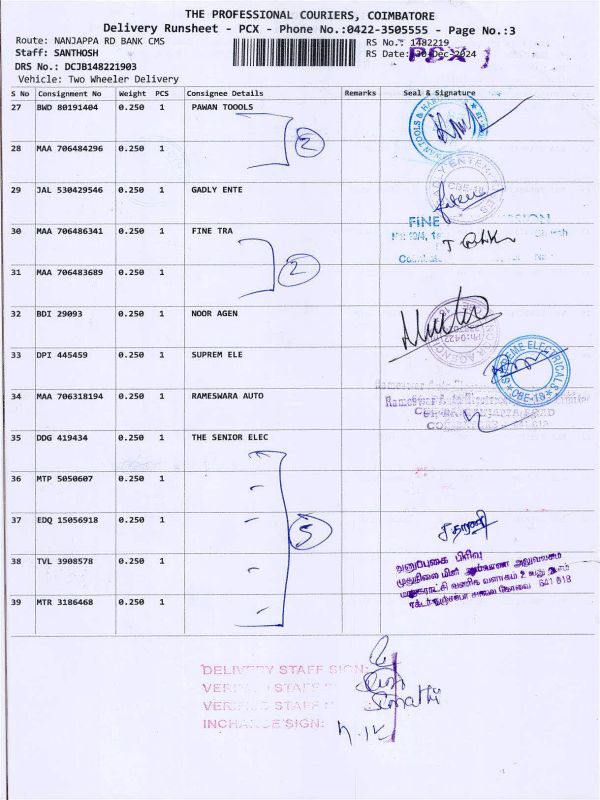 THE PROFESSIONAL COURIERS, COIMBATORE
Delivery Runsheet - PCX - Phone No.:0422-3505555 - Page No.:3
Route: NANJAPPA RD BANK CMS
RS No.: 1482219
Staff: SANTHOSH
RS Date: 30-Dec-2024
PCX
DRS No.: DCJB148221903
Vehicle: Two Wheeler Delivery
S No Consignment No Weight PCS Consignee Details Remarks Seal & Signature
27 BWD 80191404 0.250 1 PAWAN TOOOLS
2
28 MAA 706484296 0.250 1
29 JAL 530429546 0.250 1 GADLY ENTE
CBE-18
30 MAA 706486341 0.250 1 FINE TRA
FINE
2
31 MAA 706483689 0.250 1
32 BDI 29093 0.250 1 NOOR AGEN
33 DPI 445459 0.250 1 SUPREM ELE
SUPREME ELECTRICALS
CBE-18
34 MAA 706318194 0.250 1 RAMESWARA AUTO
35 DDG 419434 0.250 1 THE SENIOR ELEC
36 MTP 5050607 0.250 1
37 EDQ 15056918 0.250 1
5
38 TVL 3908578 0.250 1
அனுப்புகை பிரிவு
641 018
39 MTR 3186468 0.250 1
DELIVERY STAFF SIGN:
STAFF
STAFF
INCHARGE SIGN: